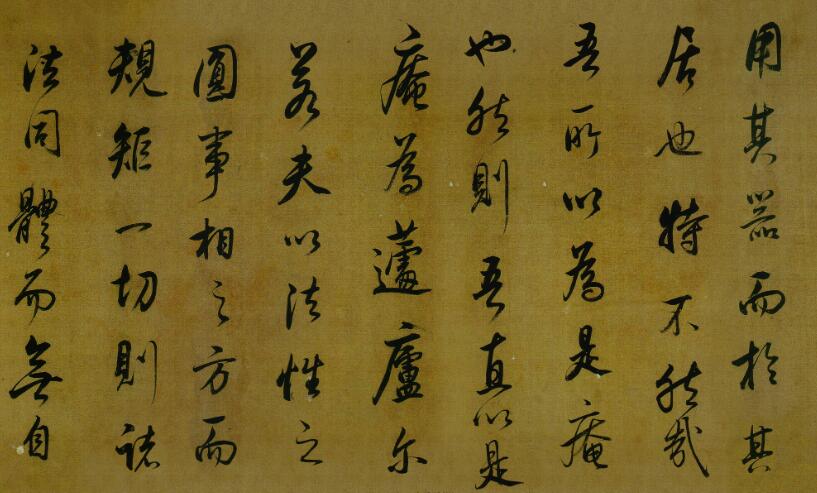 用其器而於其
居也特不然哉
吾所以為是庵
也然則吾直以是
庵為蘧廬尔
若夫以法性之
圓事相之方而
規矩一切則諸
法同體而無自